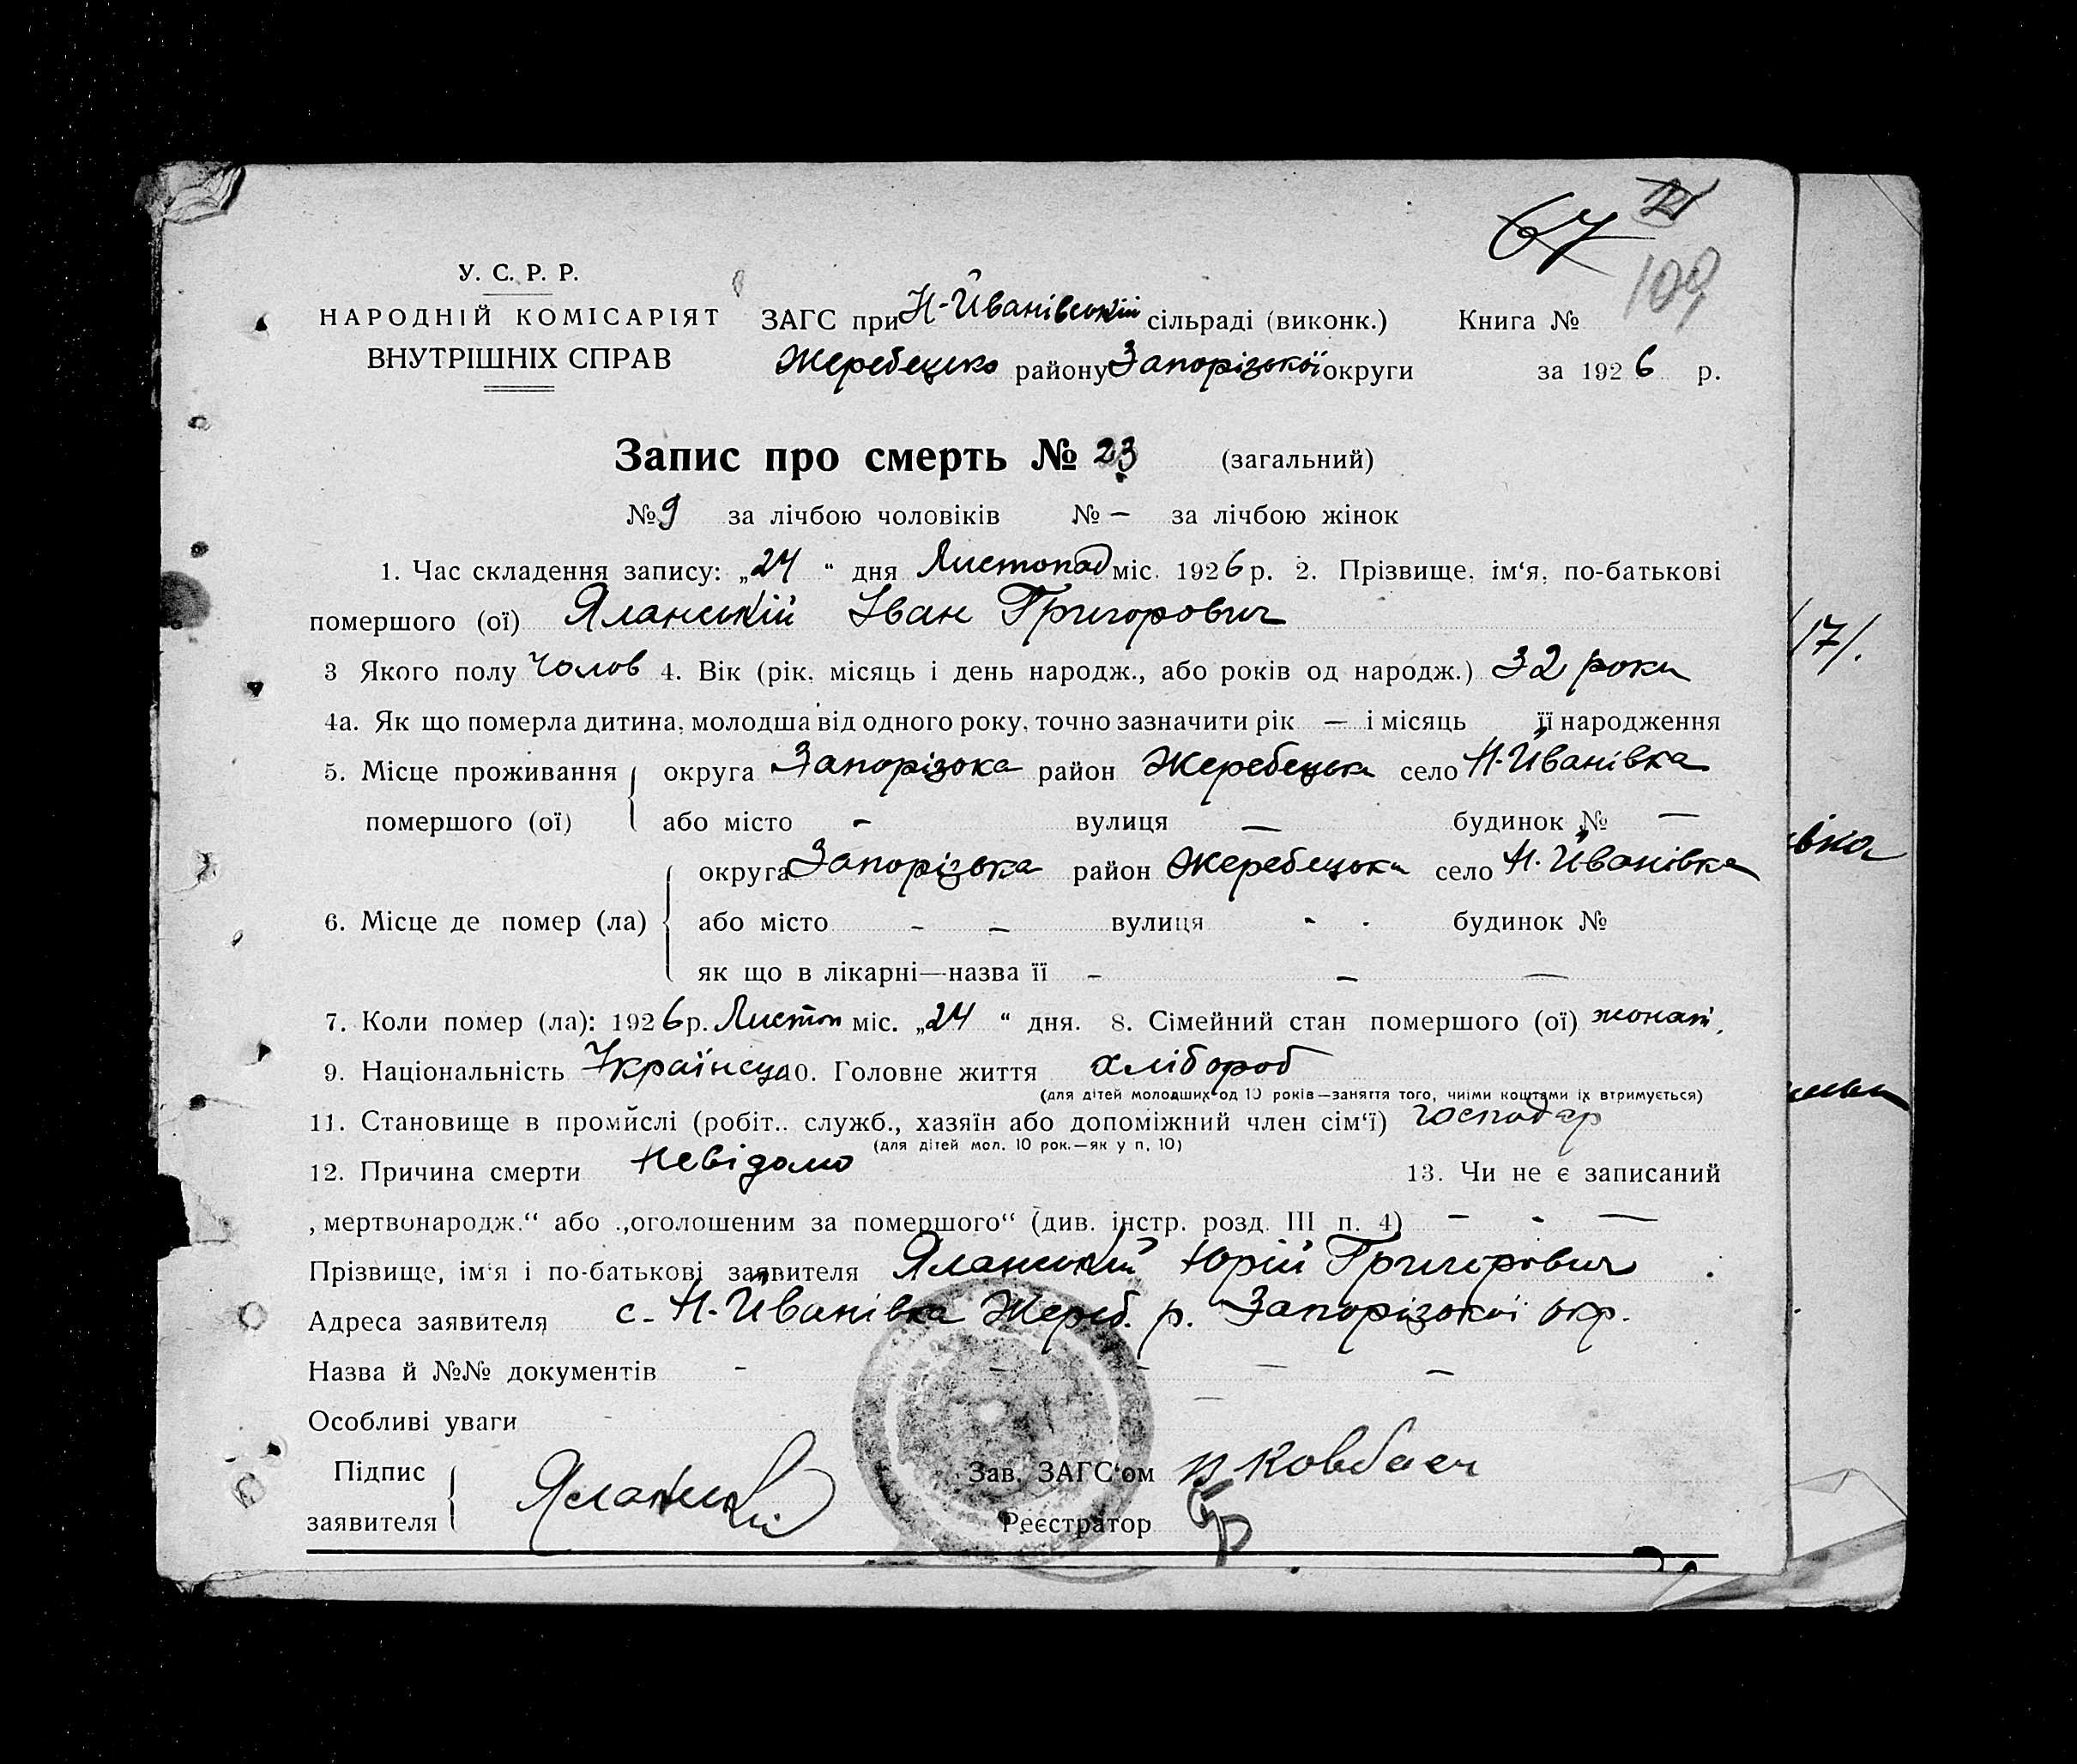 67
109
У. С. Р. Р.
НАРОДНІЙ КОМІСАРІЯТ
ВНУТРІШНІХ СПРАВ
ЗАГС при Н-Йванівській сільраді (виконк.) Книга №
Жеребецько району Запорізької округи за 1926 р.
Запис про смерть № 23 (загальний)
№ 9 за лічбою чоловіків № — за лічбою жінок
1. Час складення запису: „24“ дня Листопад міс. 1926 р. 2. Прізвище, ім‘я, по-батькові
помершого (ої) Яланський Іван Григорович
3 Якого полу Чолов 4. Вік (рік, місяць і день народж., або років од народж.) 32 роки
4а. Як що померла дитина, молодша від одного року, точно зазначити рік — і місяць її народження
5. Місце проживання округа Запорізька район Жеребецька село Н-Йванівка
помершого (ої) або місто - вулиця — будинок № —
округа Запорізька район Жеребецька село Н. Йванівка
6. Місце де помер (ла) або місто - - вулиця - - будинок №
як що в лікарні—назва її - - —
7. Коли помер (ла): 1926 р. Листоп міс. „24“ дня. 8. Сімейний стан помершого (ої) жонат.
9. Національність Українец 10. Головне життя хлібороб
(для дітей молодших од 10 років—заняття того, чиїми коштами їх втримується)
11. Становище в промислі (робіт.. служб., хазяїн або допоміжний член сім‘ї) господар
(для дітей мол. 10 рок.—як у п. 10)
12. Причина смерти Невідомо 13. Чи не є записаний
„мертвонародж.“ або „оголошеним за помершого“ (див. інстр. розд. III п. 4) - - —
Прізвище, ім‘я і по-батькові заявителя Яланський Юрій Григорович
Адреса заявителя с. Н-Йванівка Жереб. р. Запорізької окр.
Назва й №№ документів - - - — -
Особливі уваги
Підпис Яланський Зав. ЗАГС‘ом
заявителя Реєстратор
17/.
івка